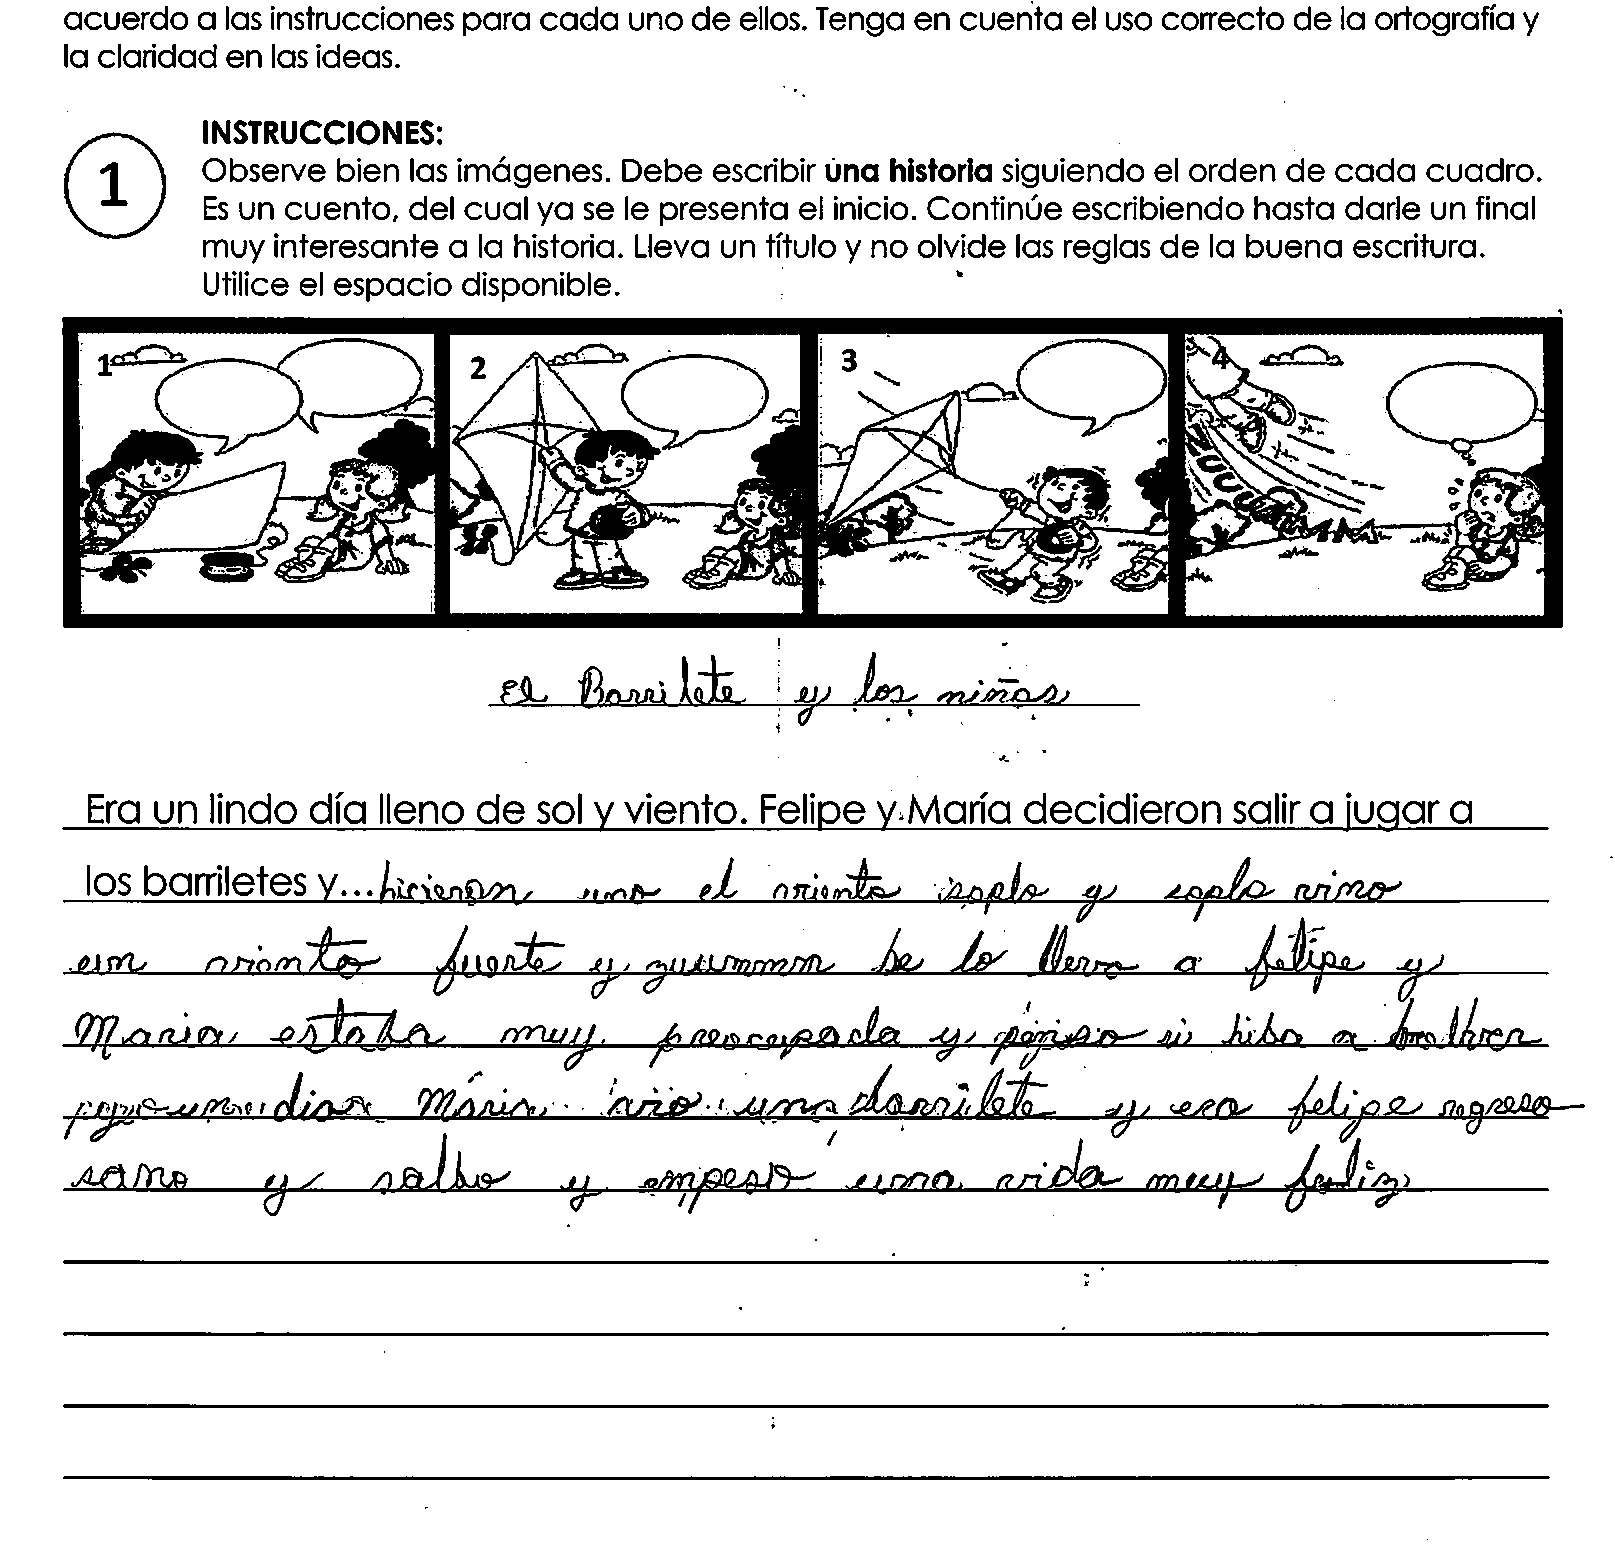 acuerdo a las instrucciones para cada uno de ellos. Tenga en cuenta el uso correcto de la ortografía y
la claridad en las ideas.
INSTRUCCIONES:
1
Observe bien las imágenes. Debe escribir una historia siguiendo el orden de cada cuadro.
Es un cuento, del cual ya se le presenta el inicio. Continúe escribiendo hasta darle un final
muy interesante a la historia. Lleva un título y no olvide las reglas de la buena escritura.
Utilice el espacio disponible.
1 2 3 4
ZUUUUMMM
El Barrilete y los niños
Era un lindo día lleno de sol y viento. Felipe y María decidieron salir a jugar a
los barriletes y... hicieron uno el viento soplo y soplo vino
un viento fuerte y zuummm se lo llevo a felipe y
Maria estaba muy preocupada y penso si hiba a bolber
pero un dia Maria vio un barrilete y era felipe regreso
sano y salbo y empeso una vida muy feliz